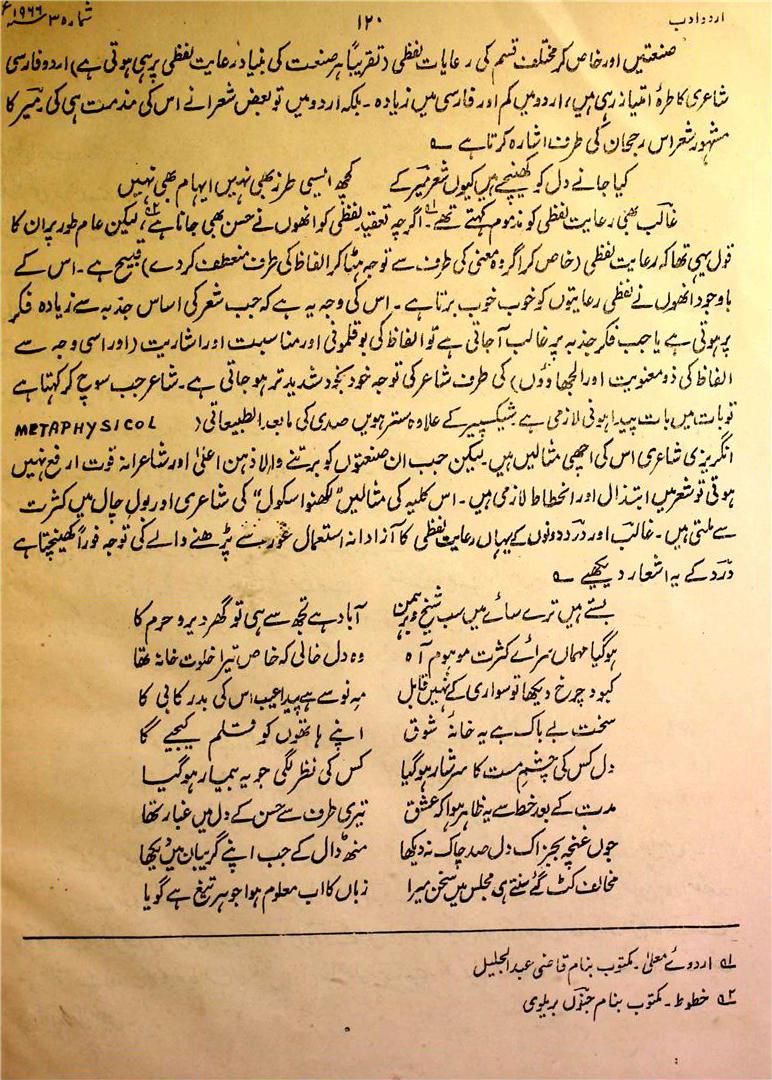 اردو ادب
۱۲۰
شمارہ ۳ سنہ ۱۹۶۶ء
صنعتیں اور خاص کر مختلف قسم کی رعایات لفظی (تقریباً ہر صنعت کی بنیاد رعایت لفظی پر ہی ہوتی ہے) اردو فارسی
شاعری کا طرۂ امتیاز رہی ہیں، اردو میں کم اور فارسی میں زیادہ ۔ بلکہ اردو میں تو بعض شعرا نے اس کی مذمت ہی کی۔ میر کا
مشہور شعر اس رجحان کی طرف اشارہ کرتا ہے ؎
کیا جانے دل کو کھینچے ہیں کیوں شعر میر کے کچھ ایسی طرز بھی نہیں ایہام بھی نہیں
غالب بھی رعایت لفظی کو مذموم کہتے تھے۔ ؂۱ اگرچہ تعقید لفظی کو انھوں نے حسن بھی جانا ہے ؂۲، لیکن عام طور پر ان کا
قول یہی تھا کہ رعایت لفظی (خاص کر اگر وہ معنی کی طرف سے توجہ ہٹا کر الفاظ کی طرف منعطف کر دے) قبیح ہے ۔ اس کے
باوجود انھوں نے لفظی رعایتوں کو خوب خوب برتا ہے ۔ اس کی وجہ یہ ہے کہ جب شعر کی اساس جذبہ سے زیادہ فکر
پر ہوتی ہے یا جب فکر جذبہ پر غالب آ جاتی ہے تو الفاظ کی بو قلمونی اور مناسبت اور اشاریت (اور اسی وجہ سے
الفاظ کی ذو معنویت اور الجھاوؤں) کی طرف شاعر کی توجہ خود بخود شدید تر ہو جاتی ہے ۔ شاعر جب سوچ کر کہتا ہے
تو بات میں بات پیدا ہونی لازمی ہے شیکسپیر کے علاوہ سترہویں صدی کی مابعد الطبیعاتی ( METAPHYSICOL
انگریزی شاعری اس کی اچھی مثالیں ہیں۔ لیکن جب ان صنعتوں کو برتنے والا ذہن اعلیٰ اور شاعرانہ قوت ارفع نہیں
ہوتی تو شعر میں ابتذال اور انحطاط لازمی ہیں ۔ اس کلیہ کی مثالیں "لکھنؤ اسکول" کی شاعری اور بول چال میں کثرت
سے ملتی ہیں ۔ غالب اور درد دونوں کے یہاں رعایت لفظی کا آزادانہ استعمال غور سے پڑھنے والے کی توجہ فوراً کھینچتا ہے
درد کے یہ اشعار دیکھیے ؎
بستے ہیں ترے سائے میں سب شیخ و برہمن آباد ہے تجھ سے ہی تو گھر دیر و حرم کا
ہو گیا مہماں سرائے کثرت موہوم آہ وہ دل خالی کہ خاص تیرا خلوت خانہ تھا
کبود چرخ دیکھا تو سواری کے نہیں قابل مہ نو سے ہے پیدا عیب اس کی بدر کابی کا
سخت بے باک ہے یہ خانۂ شوق اپنے ہاتھوں کو قلم کیجیے گا
دل کس کی چشم مست کا سرشار ہو گیا کس کی نظر لگی جو یہ بیمار ہو گیا
مدت کے بعد خط سے یہ ظاہر ہوا کہ عشق تیری طرف سے حسن کے دل میں غبار تھا
جوں غنچہ بجز اک دل صد چاک نہ دیکھا منھ ڈال کے جب اپنے گریبان میں دیکھا
مخالف کٹ گئے سنتے ہی مجلس میں سخن میرا زباں کا اب معلوم ہوا جوہر تیغ ہے گویا
؂۱ اردوئے معلیٰ ۔ مکتوب بنام قاضی عبدالجلیل
؂۲ خطوط ۔ مکتوب بنام جنوں بریلوی